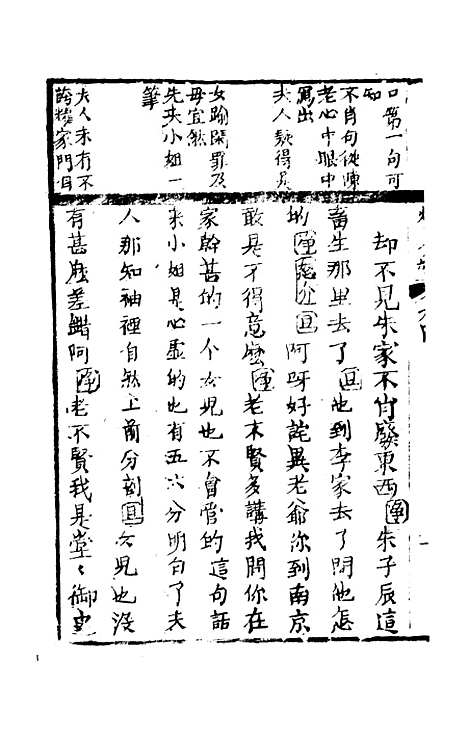 口第一句可
知
不肖句從陳
老心中眼中
寫出
夫人疑得是
女踰閑罪及
母宜然
先夾小姐一
筆
夫人未有不
誇耀家門耳
却不見朱家不肖廢東西淨朱子辰這
畜生那里去了旦他到李家去了問他怎
的淨怒介旦阿呀好詫異老爺你到南京
敢是不得意麽淨老不賢多講我問你在
家幹甚的一个女兒也不曾管的這句話
來小姐是心虛的也有五六分明白了夫
人那知袖裡自然上前分剖旦女兒也沒
有甚麽差錯阿淨老不賢我是堂堂御史